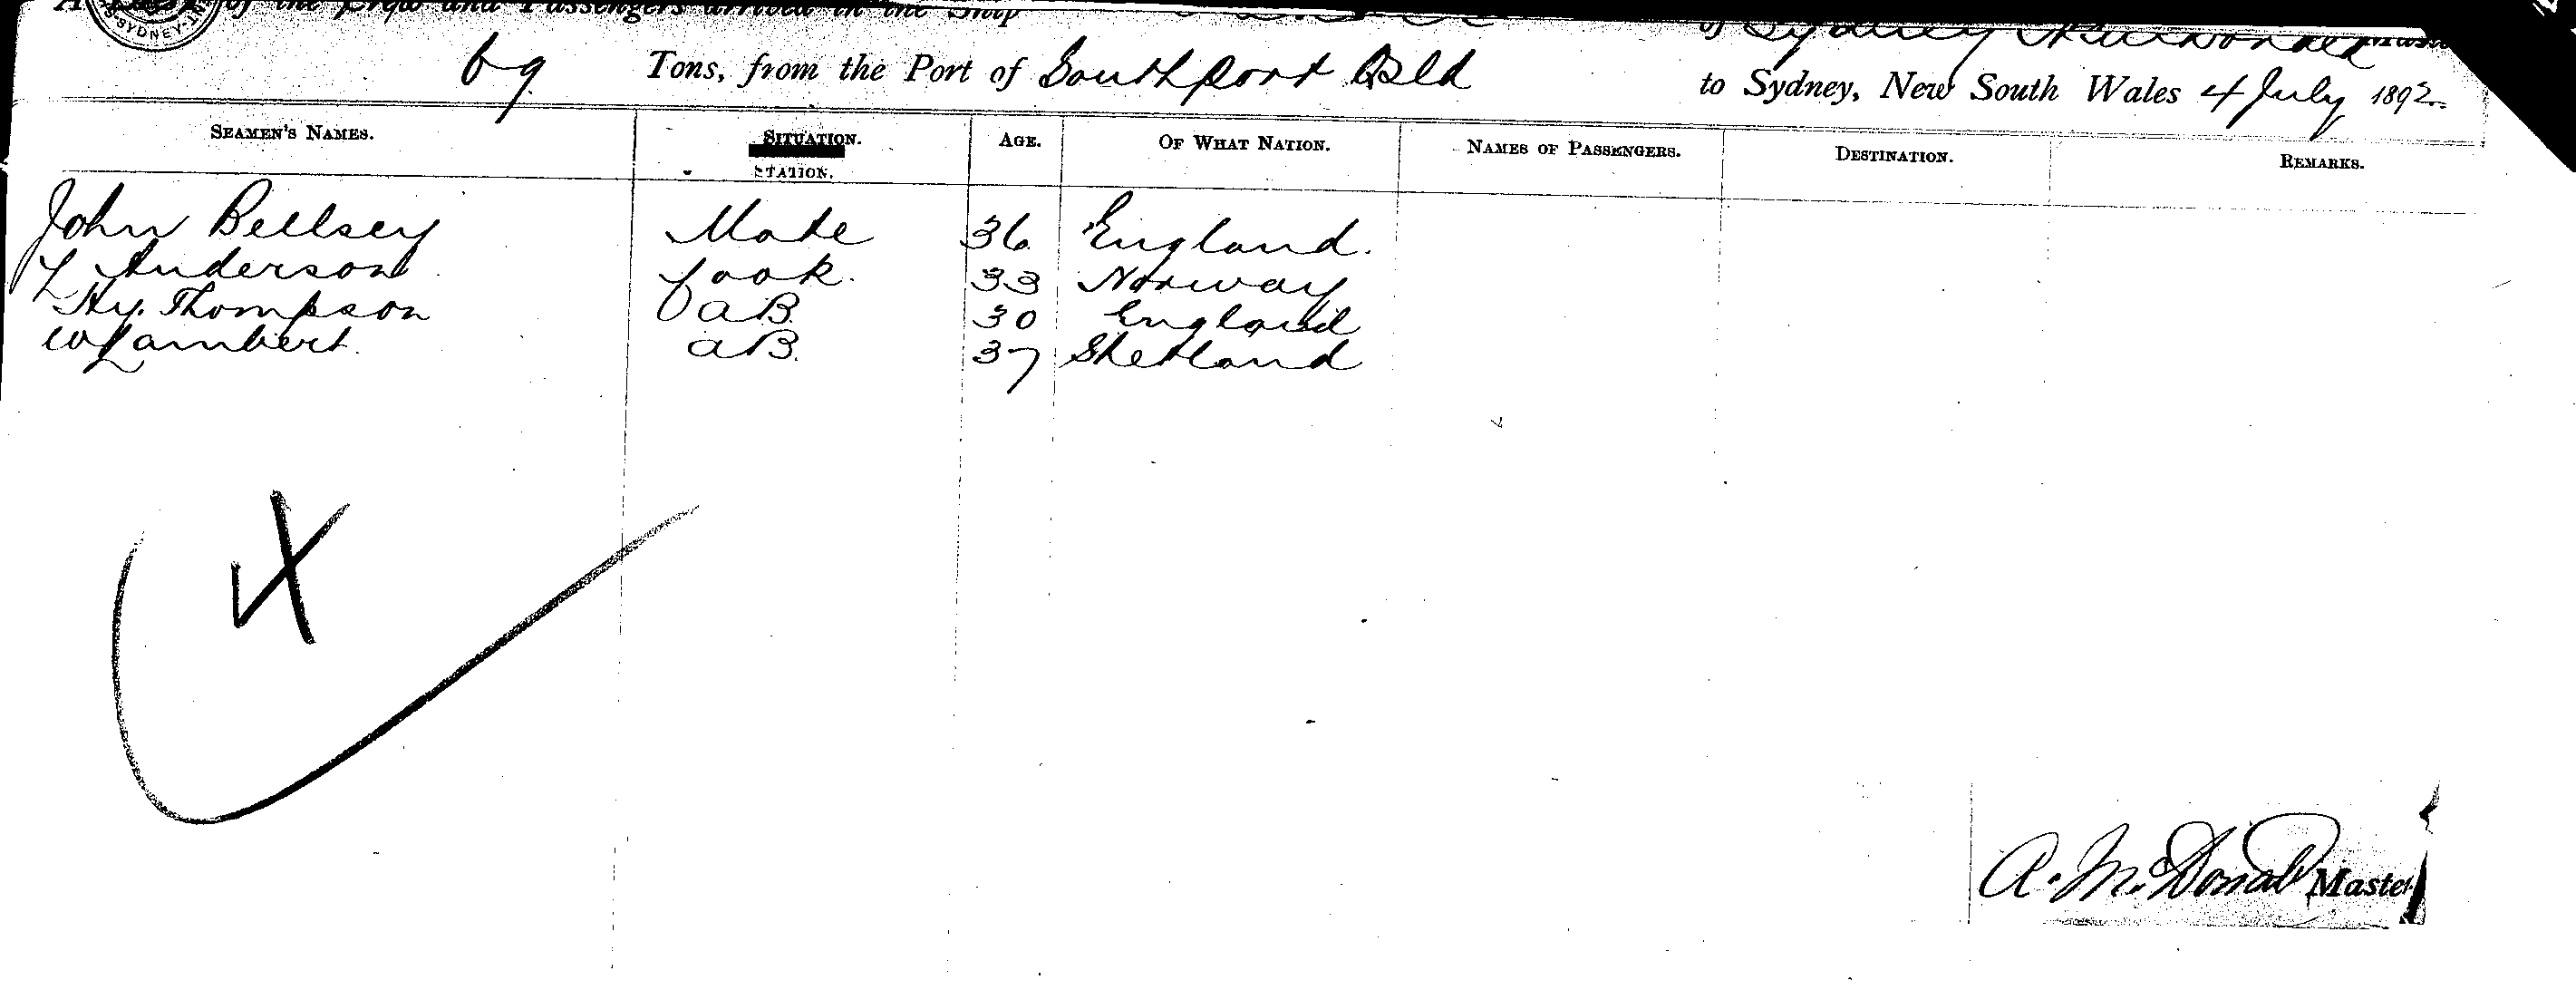 of the Crew and Passengers arrived in the Ship of Sydney
SYDNEY
69 Tons, from the Port of Southport Qld to Sydney, New South Wales 4 July 1892
SEAMEN'S NAMES. SITUATION. AGE. OF WHAT NATION. NAMES OF PASSENGERS. DESTINATION. REMARKS.
STATION.
John Bellsey Mate 36 England.
L Anderson Cook. 33 Norway
Hy. Thompson AB 30 England
W Lambert. AB. 37 Shetland
4
A. McDonald Master